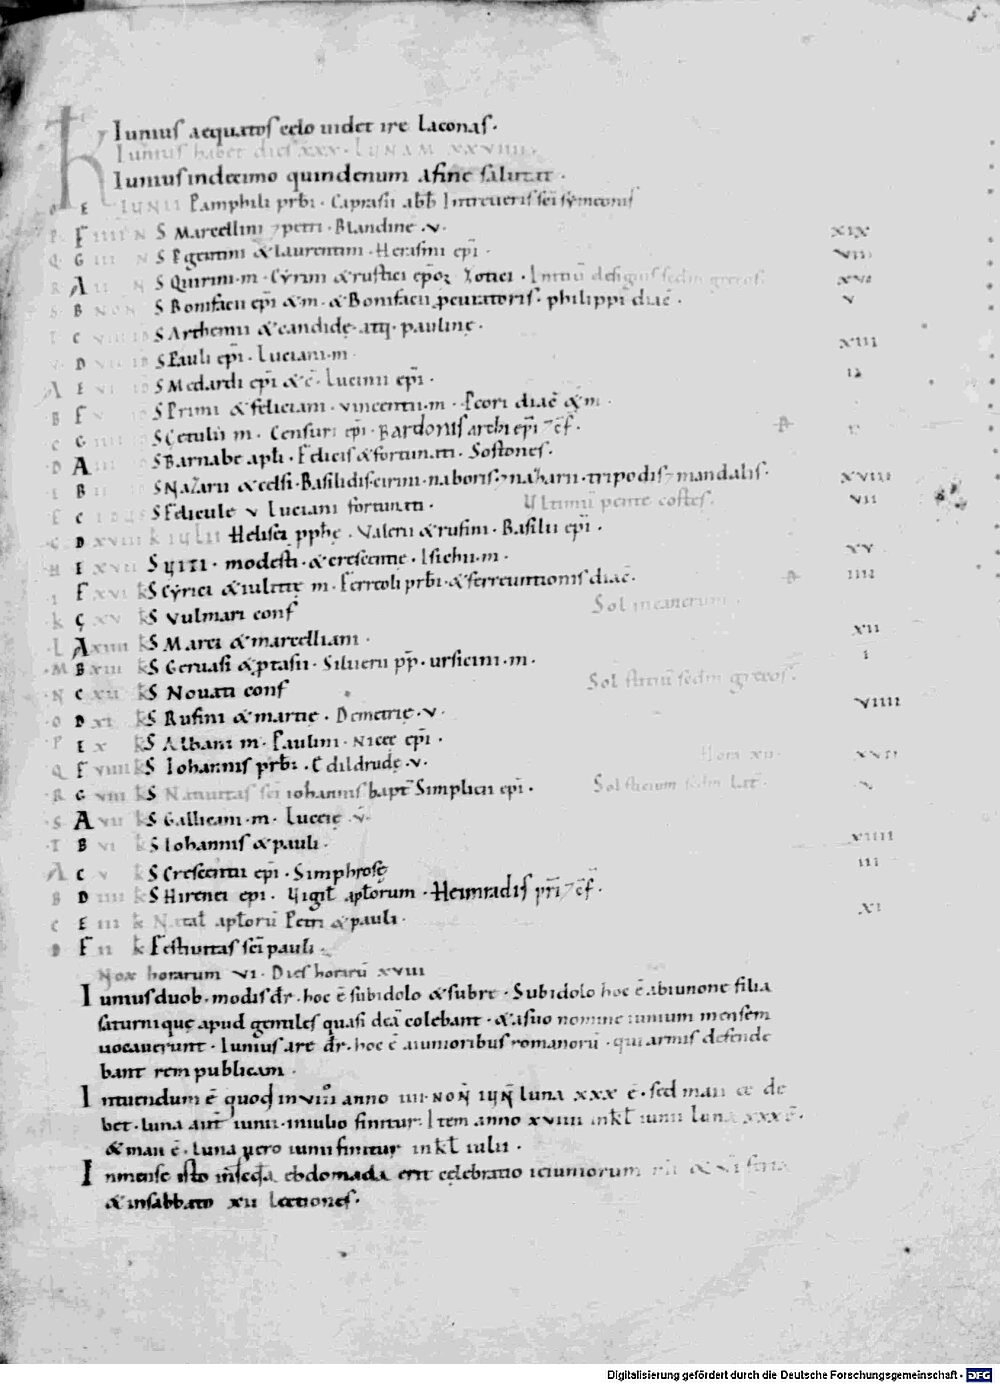 5
Iunius aequatos celo uidet ire laconas.
Iunius habet dies xxx. LUNAM XXVIIII.
Iunius in decimo quindenum a fine salutat.
O E IUNII Pamphili prbi. Caprasii abb Intreueris sci symeonis
P F IIII N S Marcellini ⁊ petri. Blandine .v. XIX
Q G III N S Pgentini & Laurentini. Herasini epi. VIII
R A II N S Quirini. m. Cyrini & rustici Zotici. Initiu sedm grecos. XVI
S B NON S Bonifacii epi & m. & Bonifacii pcuratoris. philippi diac. V
T C VIII ID S Arthemii & candide. atq. pauline.
V D VII ID S Pauli epi. Luciani. m XIII
A E VI ID S Medardi epi & c. Lucinii epi. II
B F S Primi & feliciani. vincentii. m. diac & m.
C G IIII S Cetulii m. Censuri epi. Bardonis archiepi ⁊ cf.
D A III S Barnabe apli. Felicis & fortunati. Sostones.
E B II S Nazarii & celsi. Basilidis. cirini. naboris. ⁊ nazarii. tripodis ⁊ mandalis. XVIII
F C IDUS S Felicule v Luciani fortunati. Ultimu pente costes. VII
G D XVIII K IULII Helisei pphe. Valerii & rufini. Basilii epi.
H E XVII S Uiti. modesti. & crescentie. Isichii. m. XV
I F XVI K S Cyrici & iulitte m. Ferreoli prbi. & ferruntionis diac. IIII
K G XV K S Vulmari conf Sol in cancrum.
L A XIIII K S Marci & marcelliani. XII
M B XIII K S Geruasi & ptasii. Siluerii pp. ursicini. m. I
N C XII K S Nouati conf Sol sedm grecos.
O D XI K S Rufini & martie. Demetrie. v. VIIII
P E X K S Albani m. Paulini. Nicee epi.
Q F VIIII K S Iohannis prbi. Edildrude. v. Hora XII. XVII
R G VIII K S Natiuitas sci iohannis bapt Simplicii epi. Solsticium sedm Lat. V
S A VII K S Gallicani. m. Luccie. v.
T B VI K S Iohannis & pauli. XIIII
A C V K S Crescentii epi. Simphrose III
B D IIII K S Hirenei epi. Uigil aptorum. Heimradis pri ⁊ cf.
C E III K Natal aptoru Petri & pauli. XI
D F II K Festiuitas sci pauli.
Nox horarum VI. Dies horaru XVIII
Iunius duob. modis dr. hoc e subidolo & subre. Subidolo hoc e abiunone filia
saturnique apud gentiles quasi dea colebant. & asuo nomine iunium mensem
uocauerunt. Iunius a re dr. hoc e aiunioribus romanoru. qui armis defende
bant rem publicam.
Intuendum e quod in VIII anno IIII. NON IUN luna XXX e. sed mai ee de
bet. luna aut iunii. iniulio finitur. Item anno XVIIII inkl iunii luna XXX e.
& mai e. luna uero iunii finitur inkl iulii.
In mense isto in scda ebdomada erit celebratio ieiuniorum & VI feria
& in sabbato XII Lectiones.
Digitalisierung gefördert durch die Deutsche Forschungsgemeinschaft - DFG